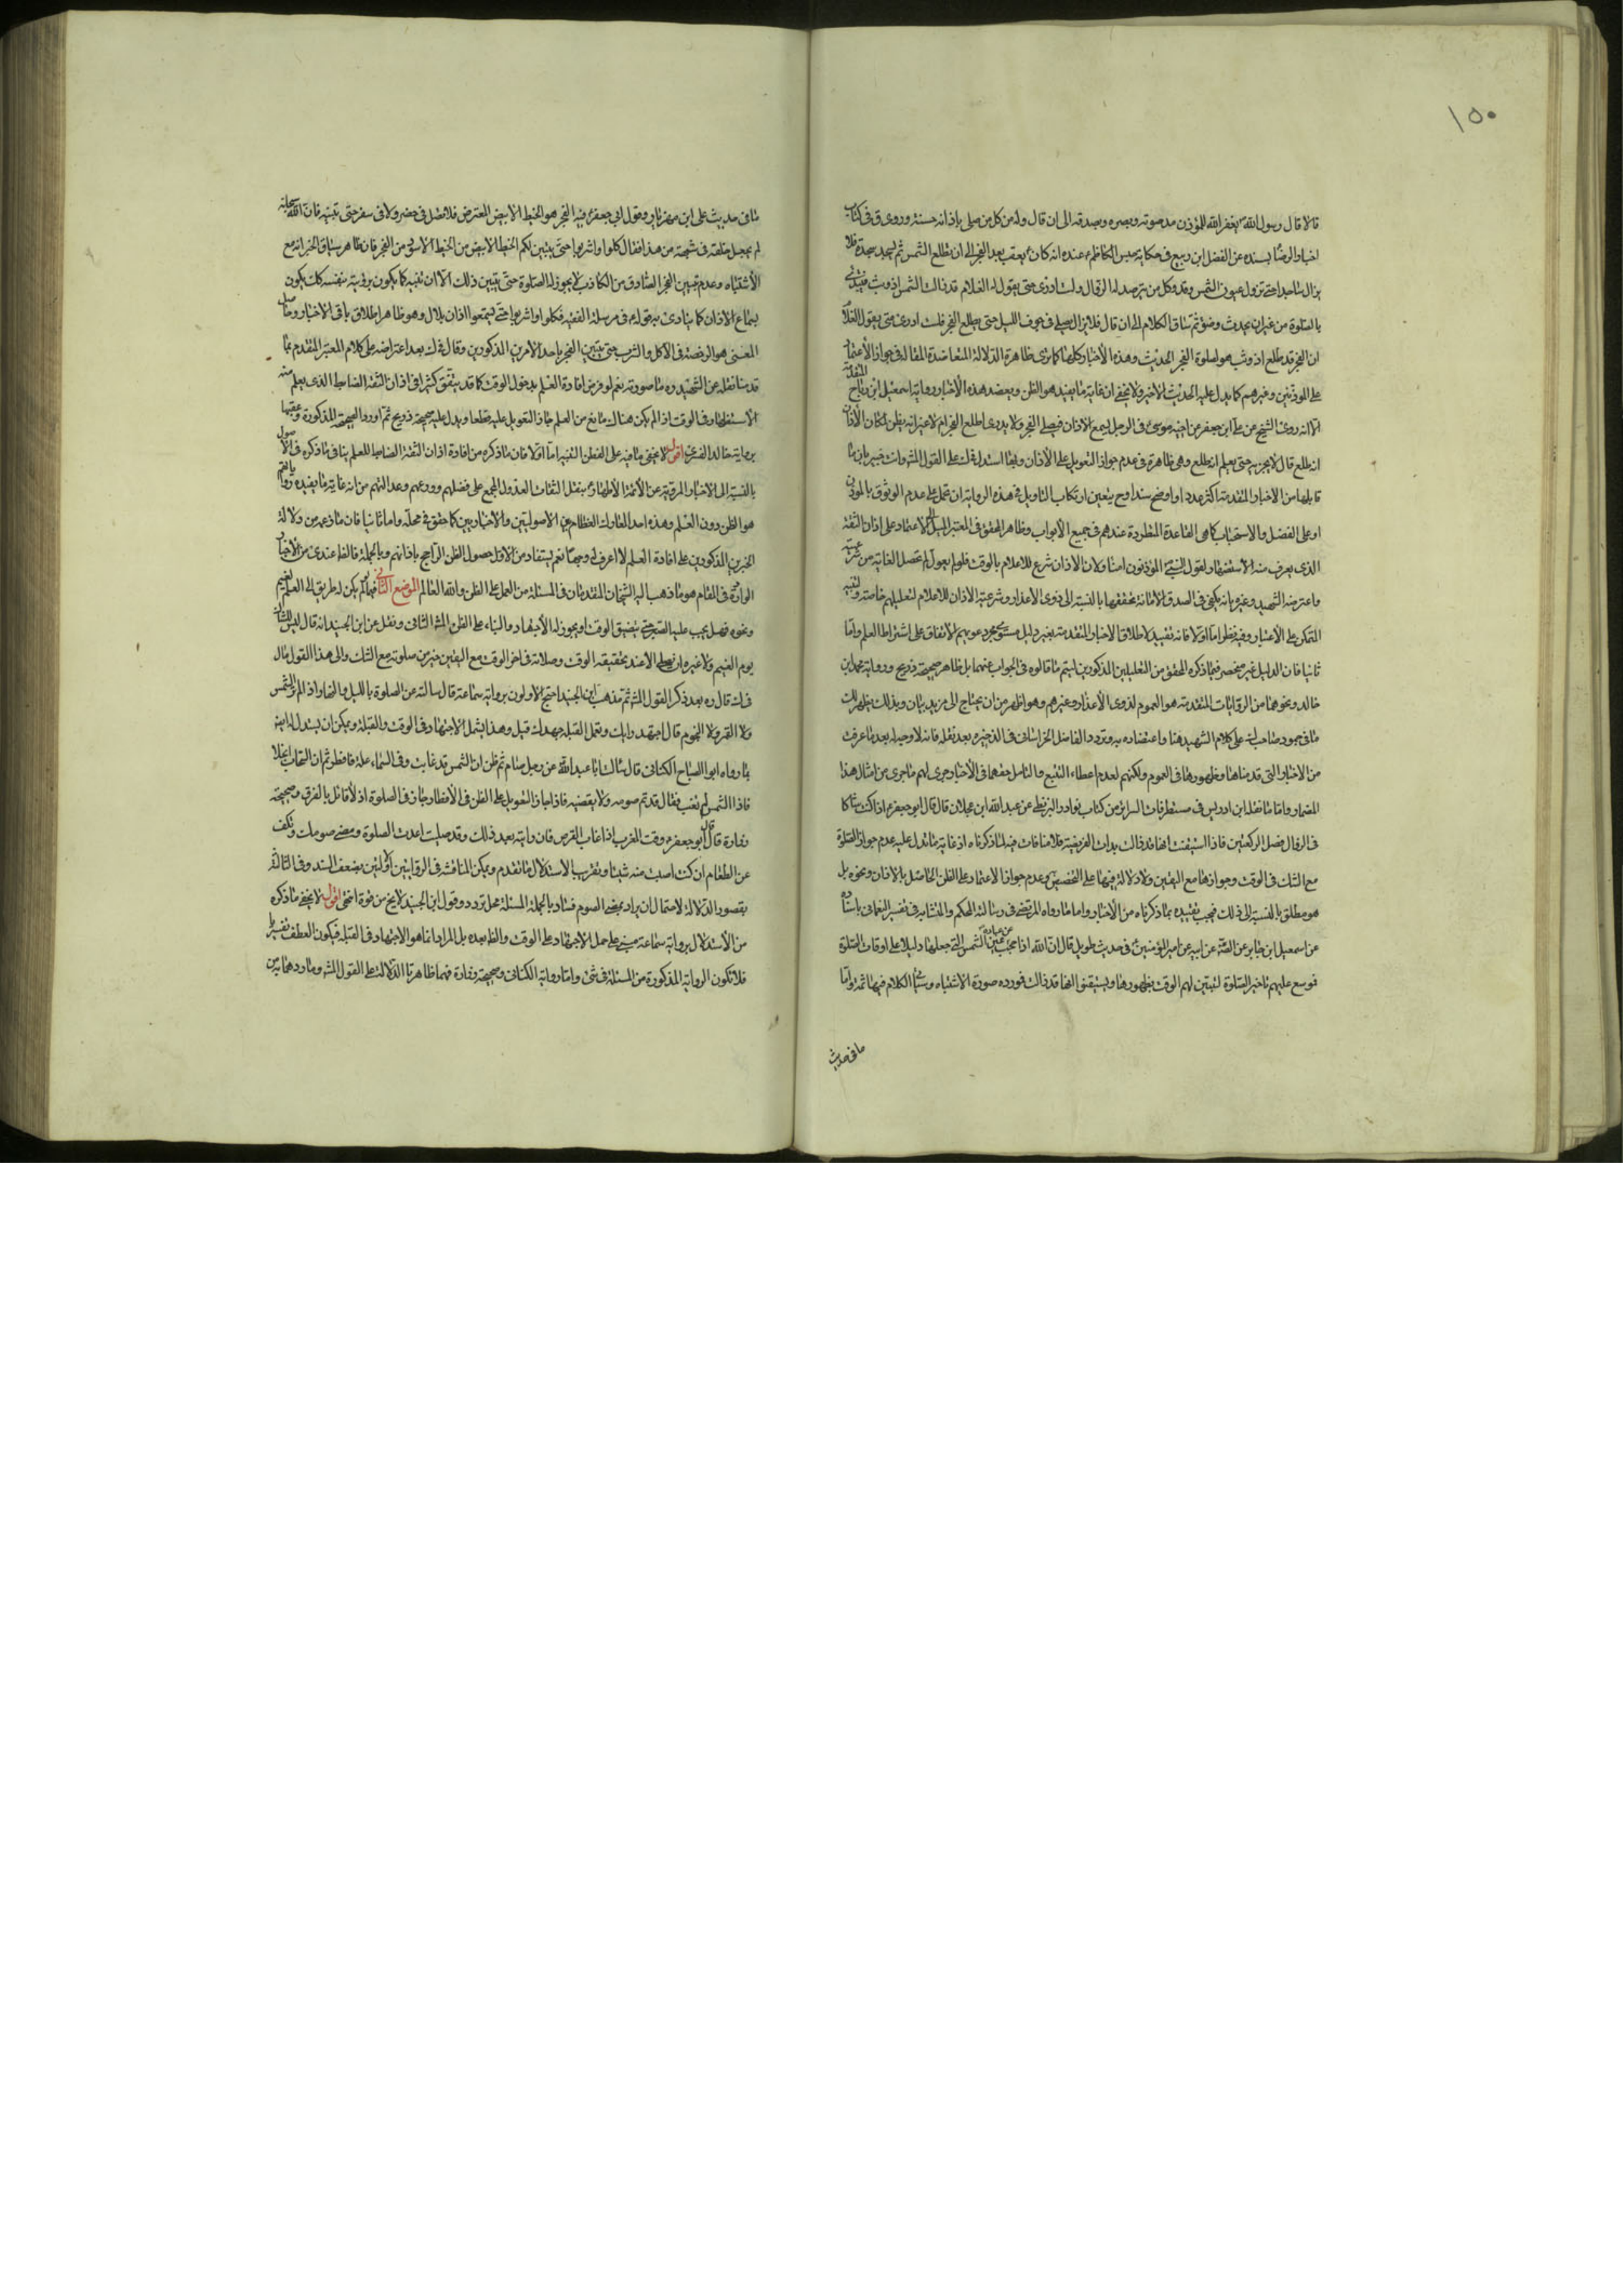 ١٥٠
قالا قال رسول الله ص يغفر الله للمؤذن مد صوته وبصره ويصدقه الى ان قال وله من كل من يصلى باذانه حسنة وروى ق فى كتاب
اخبار الرضا بسنده عن الفضل ابن ربيع فى حكاية حبس الكاظم ع عنده انه كان يعقب بعد الفجر الى ان تطلع الشمس ثم يسجد سجدة فلا
يزال ساجدا حتى تزول الشمس وقد وكل من يترصد له الزوال ولست ادرى متى يقول له الغلام قد زالت الشمس اذ وثب فيبتدئ
بالصلوة من غير ان يحدث وضوء ثم ساق الكلام الى ان قال فلا يزال يصلى فى جوف الليل حتى يطلع الفجر فلست ادرى متى يقول الغلام
ان الفجر قد طلع اذ وثب هو لصلوة الفجر الحديث وهذه الاخبار كلها كما ترى ظاهرة الدلالة المتعاضدة المقالة فى جواز الاعتماد
على المؤذنين وغيرهم كما يدل عليه الحديث الاخير ولا يخفى ان غاية ما يفيد هو الظن ويعضد هذه الاخبار رواية اسمعيل ابن رباح المتقدمة
الا انه روى الشيخ عن على ابن جعفر عن اخيه موسى ع فى الرجل يسمع الاذان فيصلى الفجر ولا يدرى اطلع الفجر ام لا غير انه يظن لمكان الاذان
انه طلع قال لا يجزيه حتى يعلم انه طلع وهى ظاهرة فى عدم جواز التعويل على الاذان وبها استدل فى ك على القول المش وانت خبير بان ما
قابلها من الاخبار المتقدمة اكثر عددا واوضح سندا وح يتعين ارتكاب التاويل فى هذه الرواية ان تحمل على عدم الوثوق بالمؤذن
او على الفضل والاستحباب كما هى القاعدة المطردة عندهم فى جميع الابواب وظاهر المحقق فى المعتبر الميل الى الاعتماد على اذان الثقة
الذى يعرف منه الاستظهار لقول النبى ص المؤذنون امنا ولان الاذان شرع للاعلام بالوقت فلو لم يعول لم تحصل الغاية من شرعيته
واعترضه الشهيد وغيره بانه يكفى فى صدق الامانة تحققها بالنسبة الى ذوى الاعذار وشرعية الاذان للاعلام لتقليدهم خاصة ولتنبيه
المتمكن على الاعتبار وفيه نظر اما اولا فانه تقييد لاطلاق الاخبار المتقدمة بغير دليل سوى مجرد دعويهم الاتفاق على اشتراط العلم واما
ثانيا فان الدليل غير منحصر فيما ذكره المحقق من التعليلين المذكورين ليتم ما قالوه فى الجواب عنهما بل ظاهر صحيحة ذريح ورواية محمد بن
خالد ونحوهما من الروايات المتقدمة هو العموم لذوى الاعذار وغيرهم وهو اظهر من ان يحتاج الى مزيد بيان وبذلك يظهر لك
ما فى جمود صاحب ك على كلام الشهيد هنا واعتضاده به وتردد الفاضل الخراسانى فى الذخيرة بعد نقله فانه لا وجه له بعد ما عرفت
من الاخبار التى قدمناها وظهورها فى العموم ولكنهم لعدم اعطاء التتبع والتامل حقهما فى الاخبار جرى لهم ما جرى من امثال هذا
المضمار واما ما نقله ابن ادريس فى مستطرفات السرائر من كتاب نوادر البزنطى عن عبد الله ابن عجلان قال قال ابو جعفر ع اذا كنت شاكا
فى الزوال فصل الركعتين فاذا استيقنت انها قد زالت بدات الفريضة فلا منافات فيه لما ذكرناه اذ غاية ما تدل عليه عدم جواز الصلوة
مع الشك فى الوقت وجوازها مع اليقين ولا دلالة فيها على التخصيص وعدم جواز الاعتماد على الظن الحاصل بالاذان ونحوه بل
هو مطلق بالنسبة الى ذلك فيجب تقييده بما ذكرناه من الاخبار واما ما رواه المرتضى فى رسالة المحكم والمتشابه فى تفسير النعمانى باسناده
عن اسمعيل ابن جابر عن الصادق عن ابيه عن امير المؤمنين ع فى حديث طويل قال ان الله اذا حجب عن عباده عين الشمس التى جعلها دليلا على اوقات الصلوة
فوسع عليهم تاخير الصلوة ليتبين لهم الوقت بظهورها ويستيقنوا انها قد زالت فمورده صورة الاشتباه وسياتى الكلام فيها ثمة واما
ما فى حديث
ما فى حديث على ابن مهزيار وقول ابى جعفر ع فيه الفجر هو الخيط الابيض المعترض فلا تصل فى حضر ولا فى سفر حتى تبينه فان الله سبحانه
لم يجعل خلقه فى شبهة من هذا فقال كلوا واشربوا حتى يتبين لكم الخيط الابيض من الخيط الاسود من الفجر فان ظاهر سياق الخبر انه مع
الاشتباه وعدم تبيين الفجر الصادق من الكاذب لا يجوز له الصلوة حتى يتبين ذلك الا ان تبينه كما يكون برؤيته بنفسه كك يكون
بسماع الاذان كما ينادى به قوله ع فى مرسلة الفقيه فكلوا واشربوا حتى تسمعوا اذان بلال وهو ظاهر اطلاق باقى الاخبار وحاصل
المعنى هو الرخصة فى الاكل والشرب حتى يتبين الفجر باحد الامرين المذكورين وقال فى ك بعد اعتراضه على كلام المعتبر المتقدم بما
قدمنا نقله عن الشهيد ره ما صورته نعم لو فرض افادة العلم بدخول الوقت كما قد يتفق كثيرا فى اذان الثقة الضابط الذى يعلم منه
الاستظهار فى الوقت اذا لم يكن هناك مانع من العلم جاز التعويل عليه قطعا ويدل عليه صحيحة ذريح ثم اورد الصحيحة المذكورة وعقبها
برواية خالد القسرى اقول لا يخفى ما فيه على الفطن النبيه اما اولا فان ما ذكره من افادة اذان الثقة الضابط للعلم ينافى ما ذكره فى الاصول
بالنسبة الى الاخبار المروية عن الائمة الاطهار ع بنقل الثقات العدول المجمع على فضلهم وورعهم وعدالتهم من انه غاية ما يفيده رواياتهم
هو الظن دون العلم وهذه احد المعارك العظام بين الاصوليين والاخباريين كما حقق فى محله واما ثانيا فان ما زعمه من دلالة
الخبرين المذكورين على افادة العلم لا اعرف له وجها نعم يستفاد من الاول حصول الظن الراجح باذانهم وبالجملة فالظ عندى من الاخبار
الواردة فى المقام هو ما ذهب اليه الشيخان المتقدمان فى المسئلة من العمل على الظن والله العالم الموضع الثانى فيما لم يكن له طريق الى العلم لغيم
ونحوه فهل يجب عليه الصبر حتى يتيقن الوقت او يجوز له الاجتهاد والبناء على الظن المش الثانى ونقل عن ابن الجنيد انه قال ليس للشاك
يوم الغيم ولا غيره ان يصلى الا عند تحقيقه الوقت وصلاته فى اخر الوقت مع اليقين خير من صلوته مع الشك والى هذا القول مال
فى ك قال ره بعد ذكر القول المش ثم مذهب ابن الجنيد احتج الاولون برواية سماعة قال سالته عن الصلوة بالليل والنهار اذا لم تر الشمس
ولا القمر ولا النجوم قال اجتهد رايك وتعمل القبلة جهدك قيل وهذا يشمل الاجتهاد فى الوقت والقبلة ويمكن ان يستدل له ايضا
بما رواه ابو الصباح الكنانى قال سالت ابا عبد الله عن رجل صام ثم ظن ان الشمس قد غابت وفى السماء علة فافطر ثم ان السحاب انجلا
فاذا الشمس لم تغب فقال قد تم صومه ولا يقضيه فاذا جاز التعويل على الظن فى الافطار جاز فى الصلوة اذ لا قائل بالفرق وصحيحة
زرارة قال قال ابو جعفر ع وقت المغرب اذا غاب القرص فان رايته بعد ذلك وقد صليت اعدت الصلوة ومضى صومك وتكف
عن الطعام ان كنت اصبت منه شيئا وتقريب الاستدلال ما تقدم ويمكن المناقشة فى الروايتين الاوليين بضعف السند وفى الثالثة
بقصور الدلالة لاحتمال ان يراد بمضى الصوم فساده وبالجملة المسئلة محل تردد وقول ابن الجنيد لا يخ من قوة انتهى اقول لا يخفى ما ذكره
من الاستدلال برواية سماعة مبنى على حمل الاجتهاد على الوقت والظ بعده بل المراد انما هو الاجتهاد فى القبلة فيكون العطف تفسيريا
فلا تكون الرواية المذكورة من المسئلة فى شئ واما رواية الكنانى وصحيحة زرارة فهما ظاهرتا الدلالة على القول المش وما ردهما به من